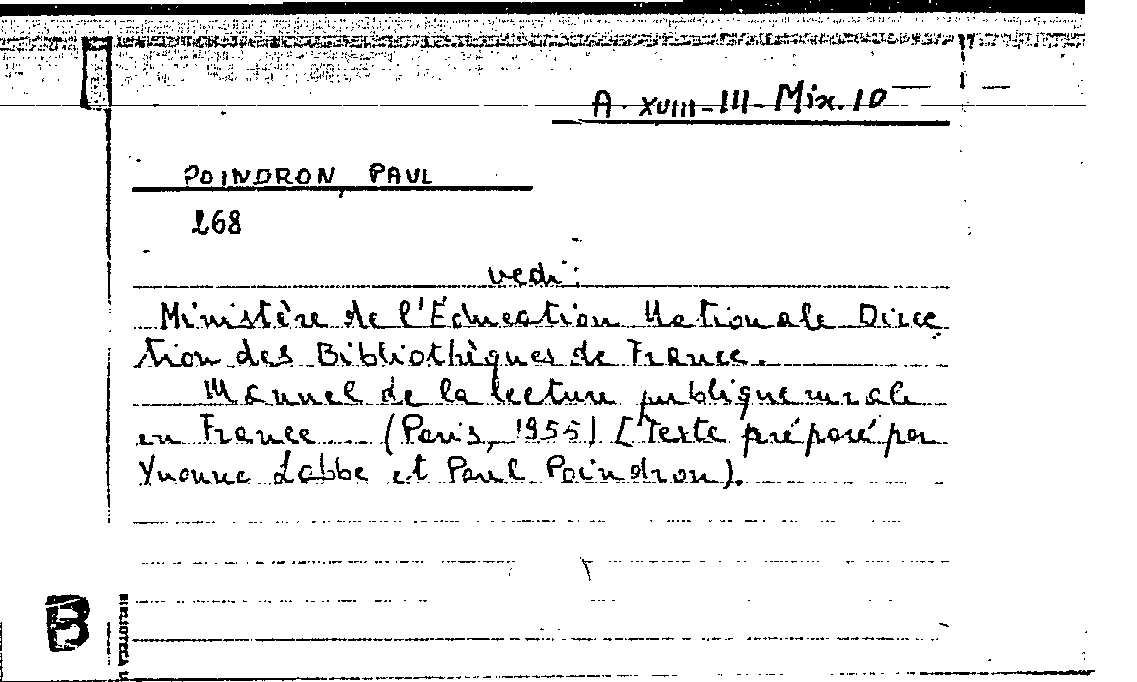 A. XVIII-III-Mix. 10
POINDRON, PAUL
268
vedi:
Ministère de l'Éducation Nationale Direc
tion des Bibliothèques de France.
Manuel de la lecture publique rurale
en France... (Paris, 1955) [Texte préparé par
Yvonne Labbe et Paul Poindron).
B
BIBLIOTECA